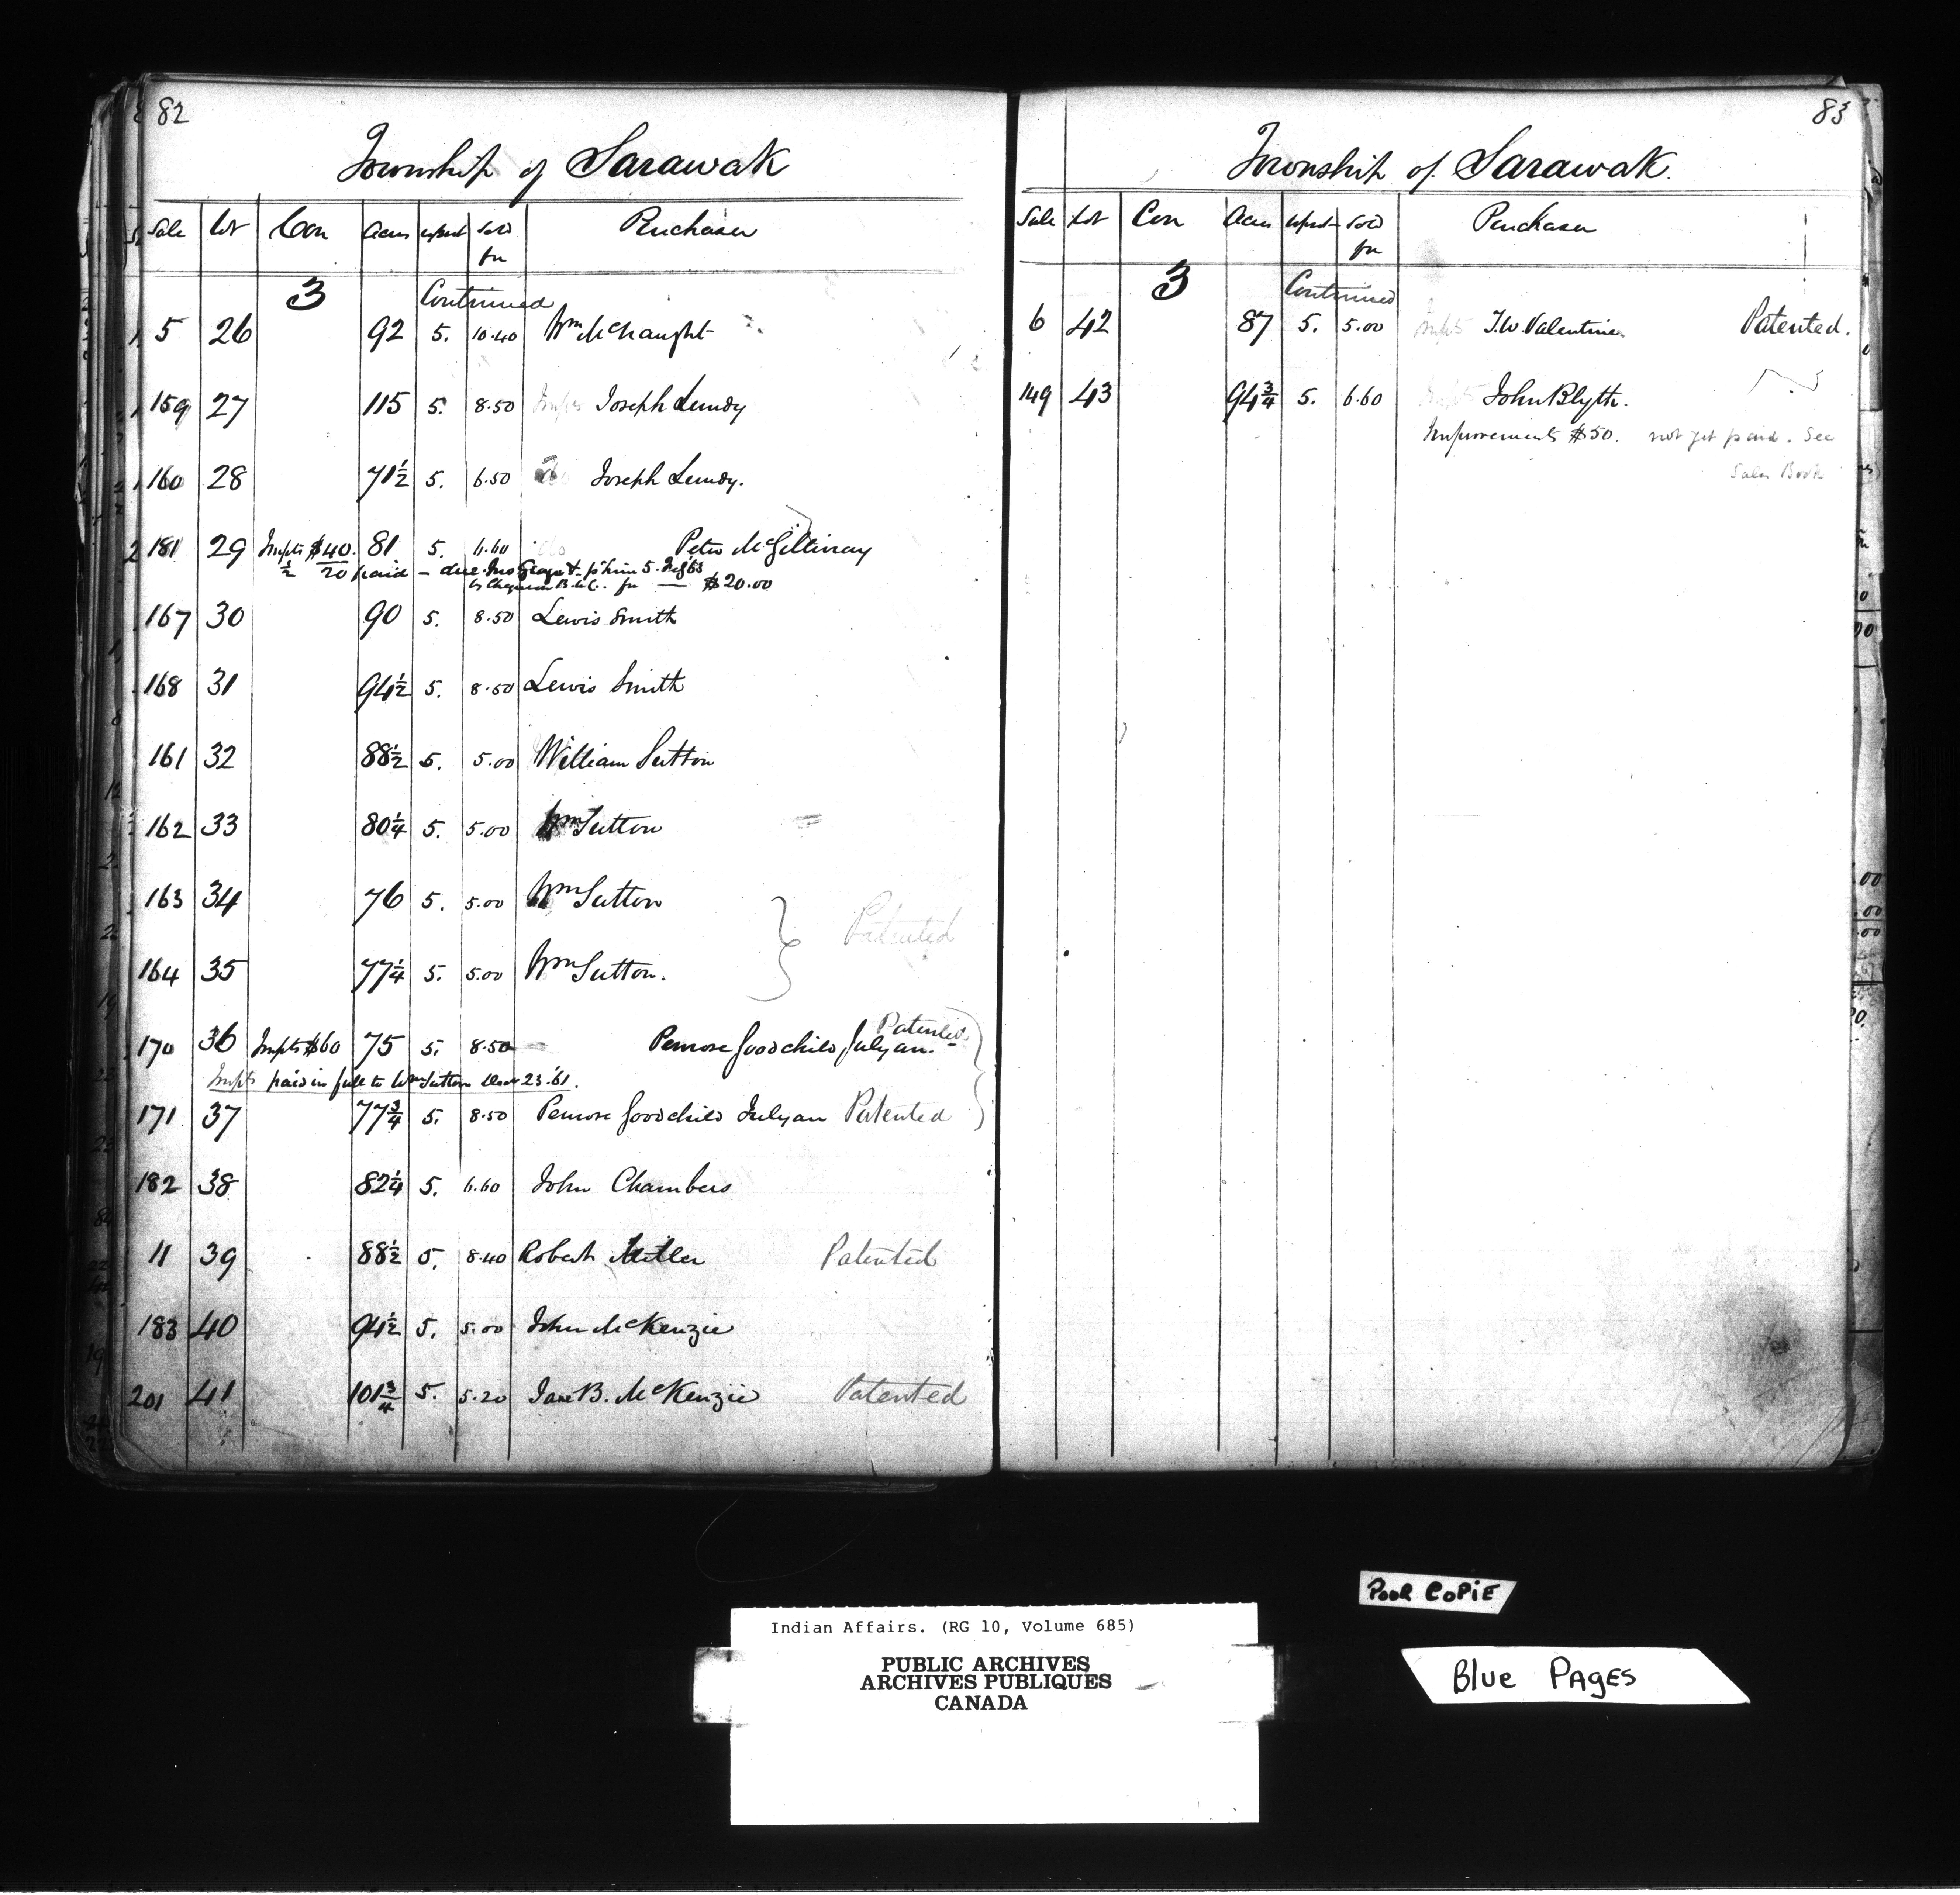 82
Township of Sarawak
Sale Lot Con Acres upset Sold for Purchaser
3 Continued
5 26 92 5. 10.40 Wm McNaught
159 27 115 5. 8.50 Impts Joseph Lundy
160 28 71½ 5. 6.50 do Joseph Lundy.
181 29 Impts $40. 81 5. 6.60 do Peter McGillivray
½ 20 paid — due Jno 5. 63
for — $20.00
167 30 90 5. 8.50 Lewis Smith
168 31 94½ 5. 8.50 Lewis Smith
161 32 88½ 5. 5.00 William Sutton
162 33 80¼ 5. 5.00 Wm Sutton
163 34 76 5. 5.00 Wm Sutton
Patented
164 35 77¼ 5. 5.00 Wm Sutton.
170 36 Impts $60 75 5. 8.50 Penrose Goodchild Julyan. Patented
Impts paid in full to Wm Sutton Decr 23.'61.
171 37 77¾ 5. 8.50 Penrose Goodchild Julyan Patented
182 38 82¼ 5. 6.60 John Chambers
11 39 88½ 5. 8.40 Robert Miller Patented
183 40 94½ 5. 5.00 John McKenzie
201 41 101¾ 5. 5.20 Jane B. McKenzie Patented
83
Township of Sarawak.
Sale Lot Con Acres upset Sold for Purchaser
3 Continued
6 42 87 5. 5.00 Impts T.W. Valentine. Patented.
149 43 94¾ 5. 6.60 Impts John Blyth.
Improvements $50. not yet paid. See
Sales Book
POOR COPIE
Indian Affairs. (RG 10, Volume 685)
PUBLIC ARCHIVES
ARCHIVES PUBLIQUES
CANADA
Blue PAgES